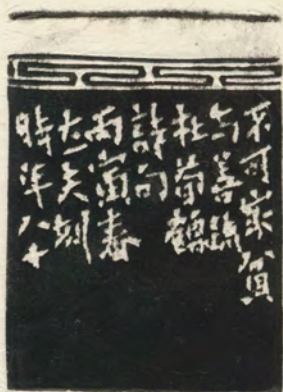 不可家貧
与善疏
杜荀鶴
詩句
丙寅春
立夫刻
時年八十